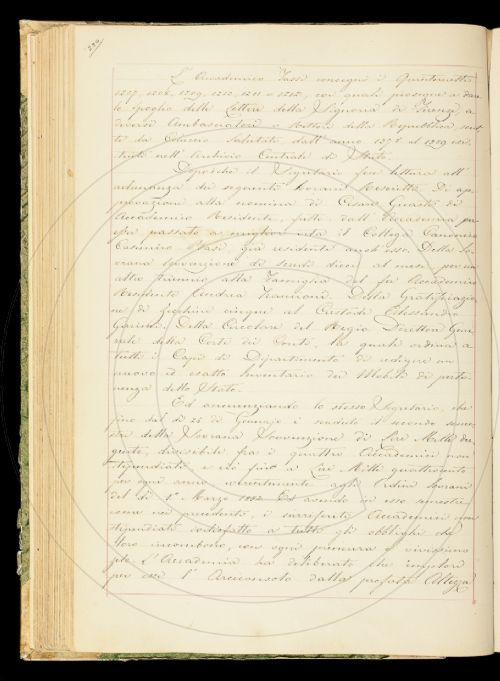 220
L'Accademico Tassi consegnò i Quinternetti
1207, 1208, 1209, 1210, 1211 e 1212, coi quali prosegue a dare
lo spoglio delle Lettere della Signoria di Firenze a
diversi Ambasciatori e Rettori della Repubblica scrit-
te da Coluccio Salutati dall'anno al esi-
stente nell'Archivio Centrale di Stato.
Dopochè il Segretario fece lettura all'
adunanza dei seguenti Sovrani Rescritti. Di ap-
provazione alla nomina di Cesare Guasti di
Accademico Residente, fatta dall'Accademia pa-
 passato a miglior vita il Collega Canonico
Casimiro Basi, già residente anch'esso. Della So-
vrana concessione di scudi dieci al mese per un
altro triennio alla Famiglia del fu Accademico
Residente Andrea Francioni. Della Gratificazio-
ne di zecchini cinque al Custode Alessandro
 Della Circolare del Regio Direttore Gene-
rale della Corte dei Conti, la quale ordina a
tutti i Capi di Dipartimento di redigere un
nuovo ed esatto Inventario dei Mobili di perti-
nenza dello Stato.
Ed annunziando lo stesso Segretario, che
fino dal dì 25 di Gennajo è scaduto il secondo seme-
stre della Sovrana Sovvenzione di Lire Mille du-
gento, divisibile fra i quattro Accademici non
stipendiati e ciò fino a Lire Mille quattrocento
per ogni anno coerentemente agli Ordini Sovrani
del dì 1º Marzo Ed avendo in esso semestre
come nei precedenti, i surriferiti Accademici non
stipendiati sodisfatto a tutti gli obblighi che
loro incombono, con ogni premura e vivissimo
 l'Accademia ha deliberato che implori
per essi l'Arciconsolo dalla prefata Altezza